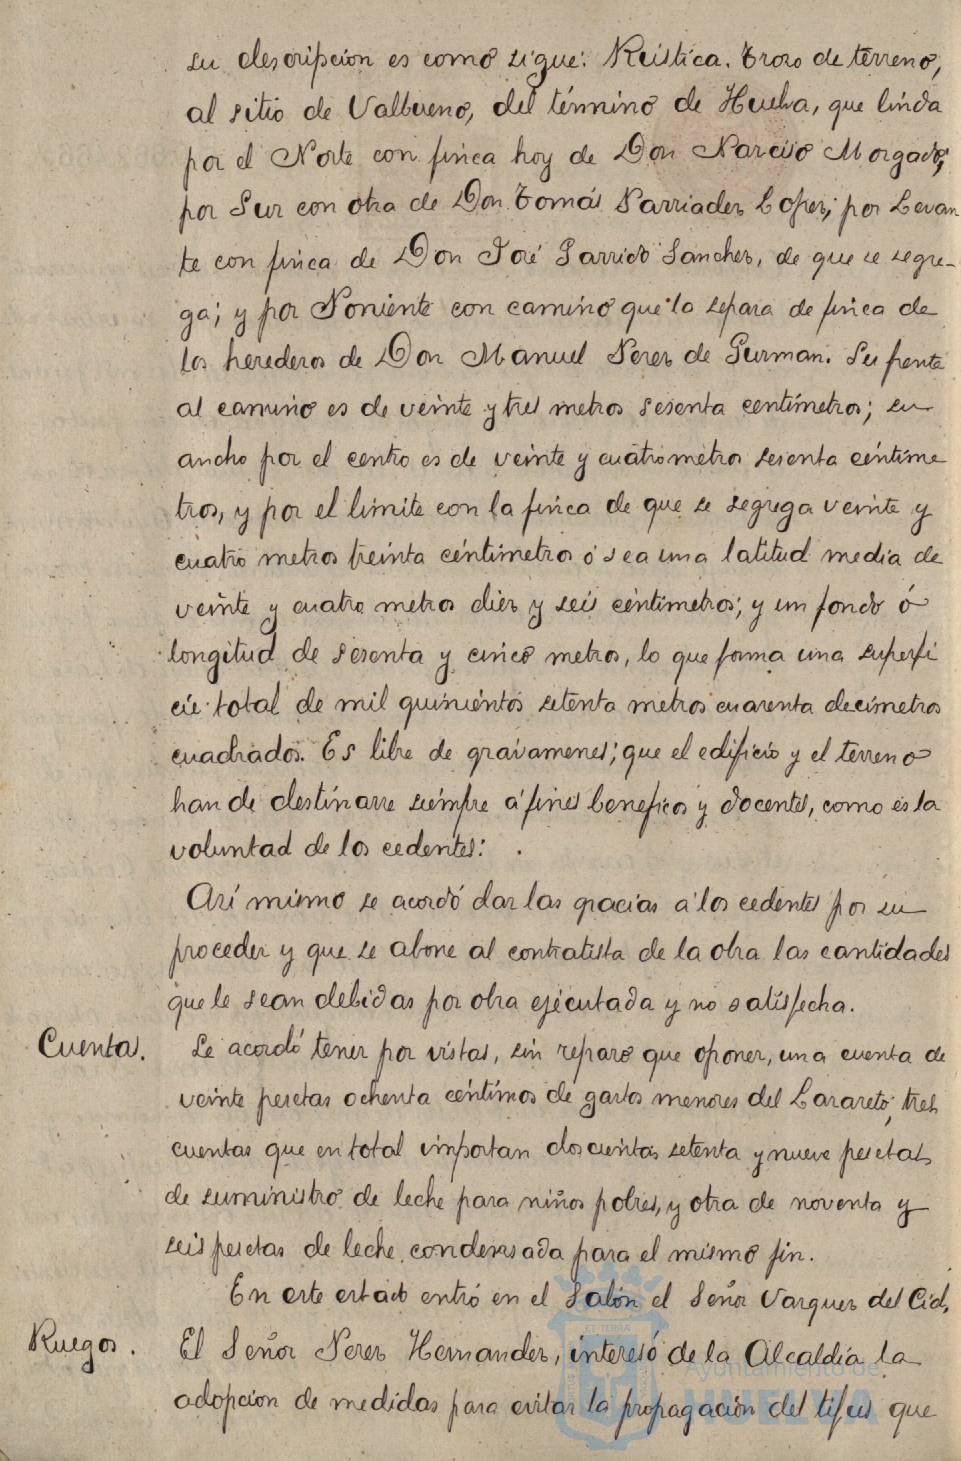 su descripcion es como sigue: Rústica. Trozo de terreno,
al sitio de Valbueno, del término de Huelva, que linda
por el Norte con finca hoy de Don Narciso Morgado;
por Sur con otra de Don Tomás Barriadez Lopez; por Levan
te con finca de Don José Garrido Sanchez, de que se segre-
ga; y por Poniente con camino que la separa de finca de
los herederos de Don Manuel Perez de Guzman. Su frente
al camino es de veinte y tres metros sesenta centímetros; su
ancho por el centro es de veinte y cuatro metros sesenta céntime
tros, y por el limite con la finca de que se segrega veinte y
cuatro metros treinta céntimetros ó sea una latitud media de
veinte y cuatro metros diez y seis céntimetros; y un fondo ó
longitud de sesenta y cinco metros, lo que forma una superfi
cie total de mil quinientos setenta metros cuarenta decímetros
cuadrados. Es libre de gravamenes; que el edificio y el terreno
han de destinarse siempre á fines beneficos y docentes, como es la
voluntad de los cedentes:
Así mismo se acordó dar las gracias a los cedentes por su
proceder y que se abone al contratista de la obra las cantidades
que le sean debidas por obra ejecutada y no satisfecha.
Cuentas. Se acordó tener por vistas, sin reparo que oponer, una cuenta de
veinte pesetas ochenta céntimos de gastos menores del Lazareto; tres
cuentas que en total importan doscientas setenta y nueve pesetas
de suministro de leche para niños pobres, y otra de noventa y
seis pesetas de leche condensada para el mismo fin.
En este estado entró en el Salón el Señor Vazquez del Cid.
Ruegos. El Señor Perez Hernandez, interesó de la Alcaldía la
adopcion de medidas para evitar la propagación del tifus que
ET TERRA
Ayuntamiento de
HUELVA